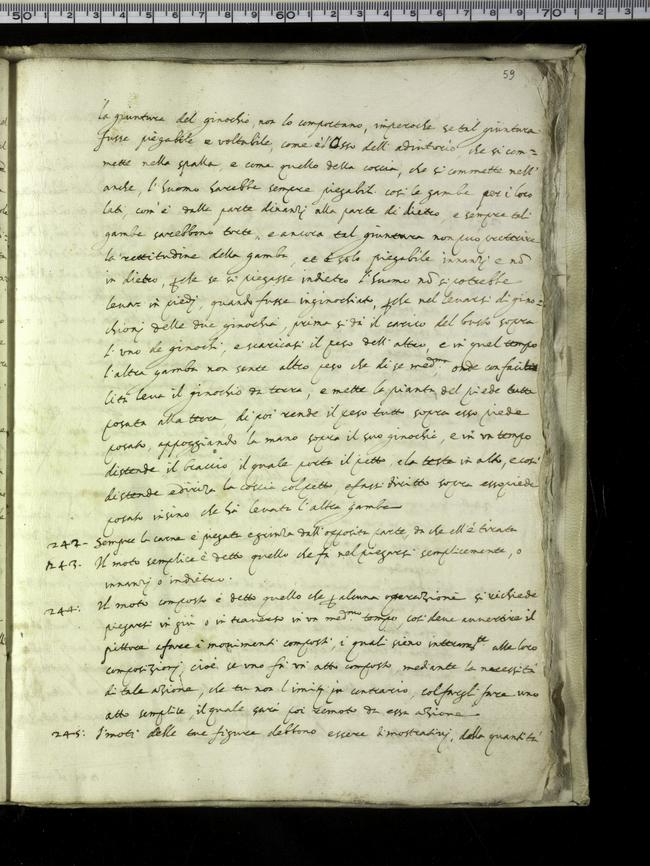 59
la giuntura del ginochio, non lo comportano, imperoche se tal giuntura
fusse piegabile e voltabile, come è l'osso dell'adiutorio che si com=
mette nella spalla, e come quello della coscia, che si commette nell'
anche, l'huomo sarebbe sempre piegabile cosi le gambe per i loro
lati, com'è dalla parte dinanzi alla parte di dietro, e sempre tal
gambe sarebbono torte, e ancora tal giuntura non puo preterire
la rettitudine della gamba, et è solo piegabile innanzi e nõ
in dietro, pche se si piegasse indietro l'huomo nõ si potrebbe
levar in piedj, quando fusse inginochiato, pche nel levarsi di gino=
chionj delle due ginochia, prima si dà il carico del busto sopra
l'uno de ginochi, e scaricasi il peso dell'altro, e in quel tempo
l'altra gamba non sente altro peso che di se medma, onde con faci
lità leva il ginochio da terra, e mette la pianta del piede tutta
posata alla terra, di poi rende il peso tutto sopra esso piede
posato, appoggiando la mano sopra il suo ginochio, e in un tempo
distende il braccio il quale porta il petto, e la testa in alto, e cosi
distende e driza la coscia col petto, e fassi diritto sopra esso piede
posato insino che hà levata l'altra gamba
242- Sempre la carne è piegata e grinza dall'opposita parte, da che ell'è tirata
243. Il moto semplice è detto quello che fa nel piegarsi semplicemente, o
innanzj o indietro.
244: Il moto composto è detto quello che p alcuna operazione si richiede
piegarsi in giù o in traverso in un medmo tempo, cosi deve avvertire il
pittore a fare i movimenti composti, i quali sieno alle loro
composizionj, cioè se uno fà un atto composto, mediante la necessità
di tale azione, che tu non l'imitj in contrario, col fargli fare uno
atto semplice, il quale sarà poi remoto da essa azione
245: I moti delle tue figure debbono essere dimostrativj, della quantità